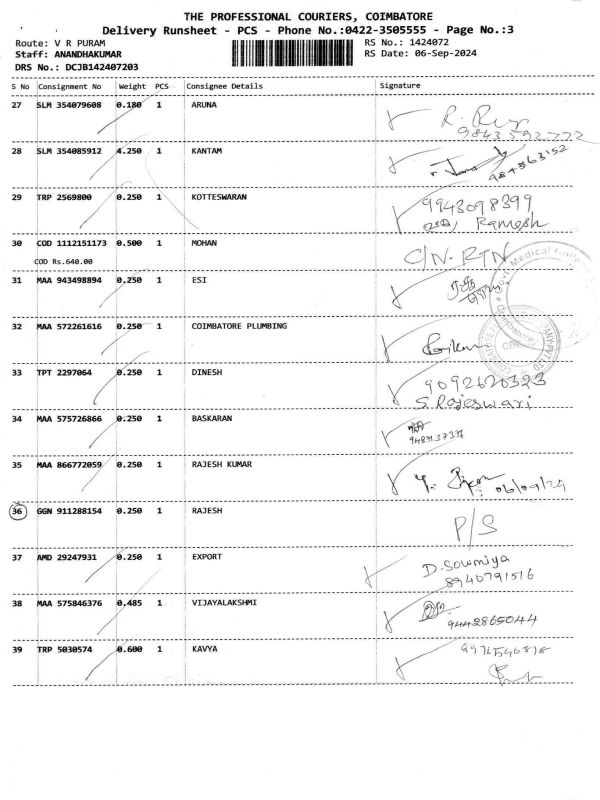 THE PROFESSIONAL COURIERS, COIMBATORE
Delivery Runsheet - PCS - Phone No.:0422-3505555 - Page No.:3
Route: V R PURAM RS No.: 1424072
Staff: ANANDHAKUMAR RS Date: 06-Sep-2024
DRS No.: DCJB142407203
S No Consignment No Weight PCS Consignee Details Signature
27 SLM 354079608 0.180 1 ARUNA
9843592772
28 SLM 354085912 4.250 1 KANTAM
29 TRP 2569800 0.250 1 KOTTESWARAN 9943098399
Ramesh
30 COD 1112151173 0.500 1 MOHAN C/N-RTN
COD Rs.640.00
31 MAA 943498894 0.250 1 ESI
32 MAA 572261616 0.250 1 COIMBATORE PLUMBING
33 TPT 2297064 0.250 1 DINESH 9092620323
S.Rajeswari
34 MAA 575726866 0.250 1 BASKARAN
35 MAA 866772059 0.250 1 RAJESH KUMAR 06/09/24
36 GGN 911288154 0.250 1 RAJESH P/S
37 AMD 29247931 0.250 1 EXPORT D.Sowmiya
8940791516
38 MAA 575846376 0.485 1 VIJAYALAKSHMI
9442865044
39 TRP 5030574 0.600 1 KAVYA